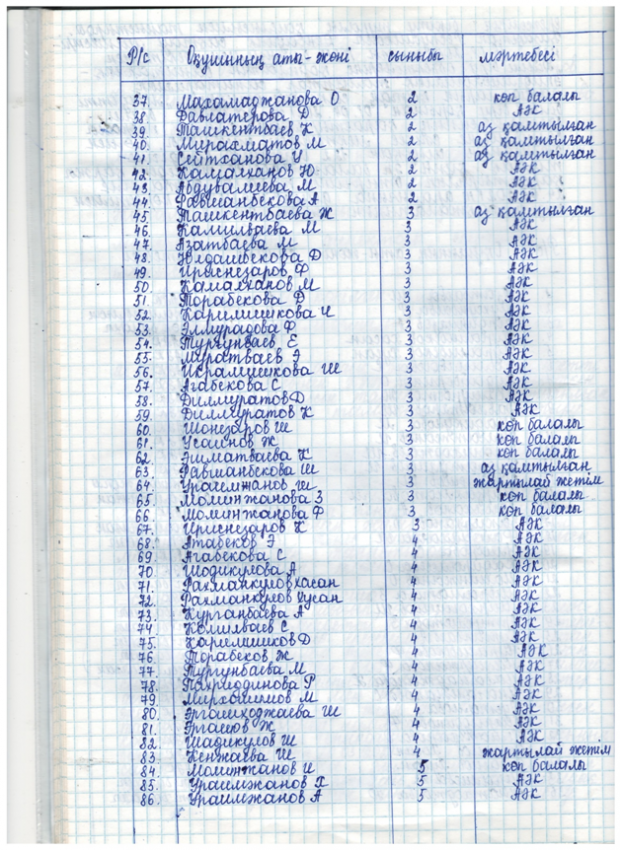 Р/с Оқушының аты-жөні сыныбы мәртебесі
37. Махамаджанова О 2 көп балалы
38 Давлатерова Д 2 АӘК
39. Ташкентбаев К 2 аз қамтылған
40. Мирахматов М 2 аз қамтылған
41. Сейтханова У 2 аз қамтылған
42. Камалханов Ю 2 АӘК
43. Абдувалиева М 2 АӘК
44. А 2 АӘК
45. Ташкентбаева Ж 3 аз қамтылған
46. М 3 АӘК
47. Азатбаева М 3 АӘК
48. Юлдашбекова Д 3 АӘК
49. Ирисназаров Ф 3 АӘК
50. Камалханов М 3 АӘК
51 Торабекова Д 3 АӘК
52. Каримшикова И 3 АӘК
53. Элмурадова Ф 3 АӘК
54. Тургунбаев Е 3 АӘК
55. Муратбаев Э 3 АӘК
56. Икрамшикова Ш 3 АӘК
57. Агабекова С 3 АӘК
58. Дилмуратов Д 3 АӘК
59. Дилмуратов К 3 АӘК
60. Шоназаров Ш 3 көп балалы
61. Усаинов Ж 3 көп балалы
62. Эшматбаева К 3 көп балалы
63. Ш 3 аз қамтылған
64. Ш 3 жартылай жетім
65. Моминжанова З 3 көп балалы
66. Моминжанова Ф 3 көп балалы
67. Ирисназаров К 3 АӘК
68. Атабеков Э 4 АӘК
69. Агабекова С 4 АӘК
70 Шадикулова А 4 АӘК
71. Рахманкулов хасан 4 АӘК
72. Рахманкулов хусан 4 АӘК
73. Курганбаева А 4 АӘК
74 С 4 АӘК
75. Каримшиков Д 4 АӘК
76 Торабеков Ж 4 АӘК
77. Тургунбаева М 4 АӘК
78. Пахридинова Р 4 АӘК
79. Мирхошимов М 4 АӘК
80. Эргашходжаева Ш 4 АӘК
81. Эргашов Ж 4 АӘК
82. Шадикулов Ш 4 АӘК
83. Кенжаева Ш 4 жартылай жетім
84. И 5 көп балалы
85. Ураимжанов Х 5 АӘК
86. Ураимжанов А 5 АӘК